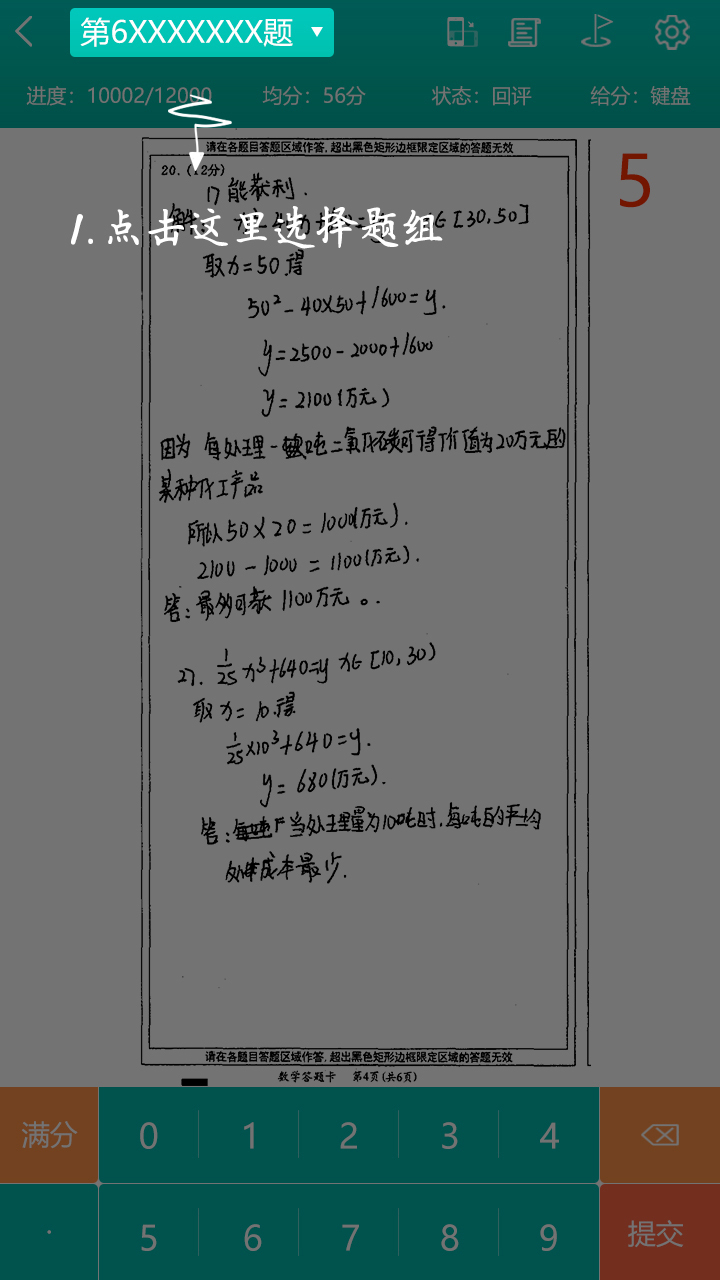 第6XXXXXXX题
进度：10002/12000 均分：56分 状态：回评 给分：键盘
请在各题目答题区域作答,超出黑色矩形边框限定区域的答题无效
5
20.（12分）
1) 能获利.
1.点击这里选择题组
∈[30,50]
取x=50得
50²-40×50+1600=y.
y=2500-2000+1600
y=2100(万元)
因为 每处理一吨二氧化碳可得价值为20万元的
某种化工产品
所以50×20=1000(万元).
2100-1000=1100(万元).
答:最多可获1100万元。.
27. 1/25 x³+640=y x∈[10,30)
取x=10.得
1/25×10³+640=y.
y=680(万元).
答: 当处理量为10吨时,每吨的平均
处理成本最少.
请在各题目答题区域作答,超出黑色矩形边框限定区域的答题无效
数学答题卡 第4页(共6页)
满分 0 1 2 3 4
. 5 6 7 8 9 提交